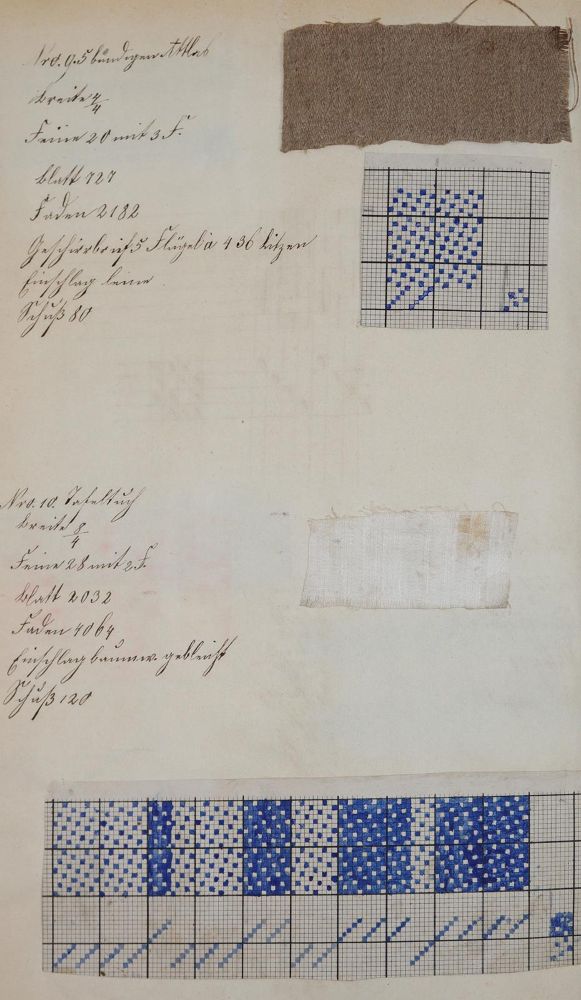 Nro. 9. 5 bündigen Attlas
Breite 4/4
Feine 20 mit 3 F.
Blatt 727
Faden 2182
Geschirrbrief 5 Flügel a 436 Litzen
Einschlag leine
Schuß 80
Nro. 10. Tafeltuch
Breite 8/4
Feine 28 mit 2 F.
Blatt 2032
Faden 4064
Einschlag baumw. gebleicht
Schuß 120